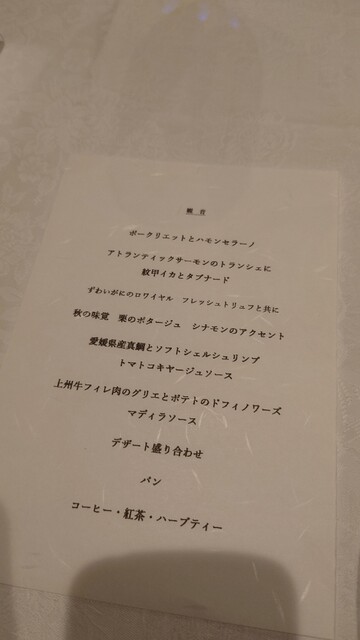 献 立
ポークリエットとハモンセラーノ
アトランティックサーモンのトランシェに
紋甲イカとタプナード
ずわいがにのロワイヤル フレッシュトリュフと共に
秋の味覚 栗のポタージュ シナモンのアクセント
愛媛県産真鯛とソフトシェルシュリンプ
トマトコキヤージュソース
上州牛フィレ肉のグリエとポテトのドフィノワーズ
マディラソース
デザート盛り合わせ
パン
コーヒー・紅茶・ハーブティー